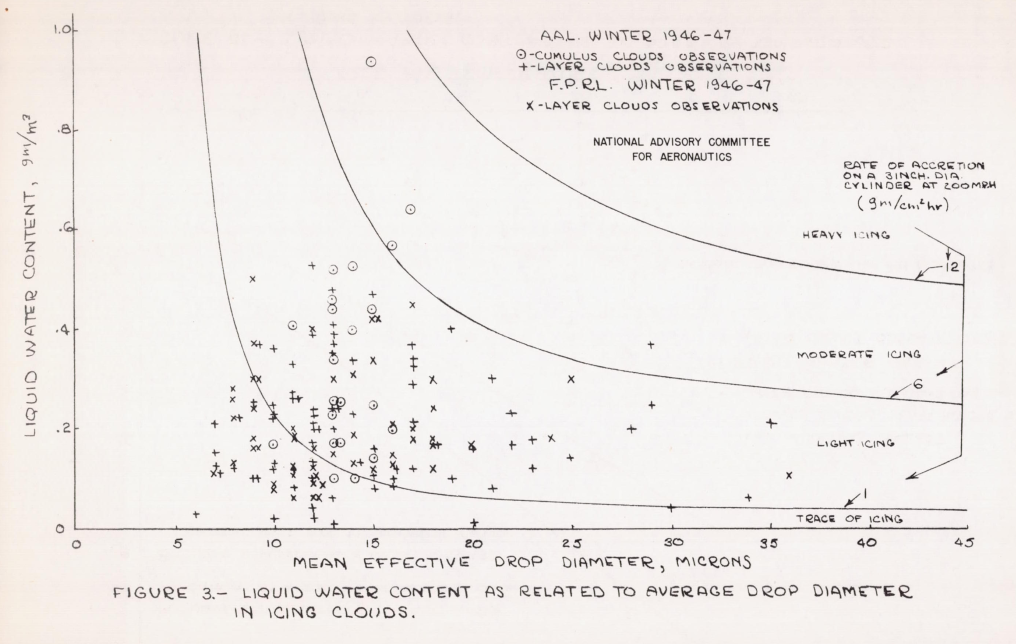 1.0
.8
.6
.4
.2
0
LIQUID WATER CONTENT, gm/m³
A.A.L. WINTER 1946-47
⊙-CUMULUS CLOUDS OBSERVATIONS
+-LAYER CLOUDS OBSERVATIONS
F.P.R.L. WINTER 1946-47
X-LAYER CLOUDS OBSERVATIONS
NATIONAL ADVISORY COMMITTEE
FOR AERONAUTICS
RATE OF ACCRETION
ON A 3INCH. DIA.
CYLINDER AT 200MPH
(gm/cm²hr)
HEAVY ICING
12
MODERATE ICING
6
LIGHT ICING
1
TRACE OF ICING
0 5 10 15 20 25 30 35 40 45
MEAN EFFECTIVE DROP DIAMETER, MICRONS
FIGURE 3.- LIQUID WATER CONTENT AS RELATED TO AVERAGE DROP DIAMETER
IN ICING CLOUDS.